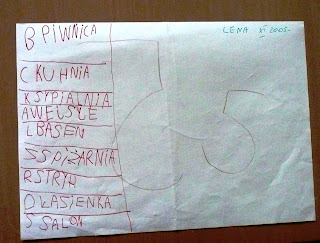 B PIWNICA
LENA XI 2005
C KUHNIA
K SYPIALNIA
A WEJSLE
L BASEN
S SPIŻARNIA
R STRYH
O LASIENKA
S SALON